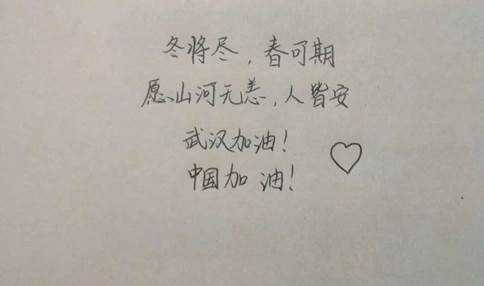 冬将尽，春可期
愿山河无恙，人皆安
武汉加油！
中国加油！